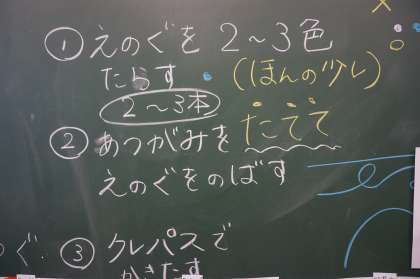 ① えのぐを 2～3色
たらす (ほんの少し)
2～3本
② あつがみを たてて
えのぐをのばす
ぐ.
③ クレパスで
かきたす